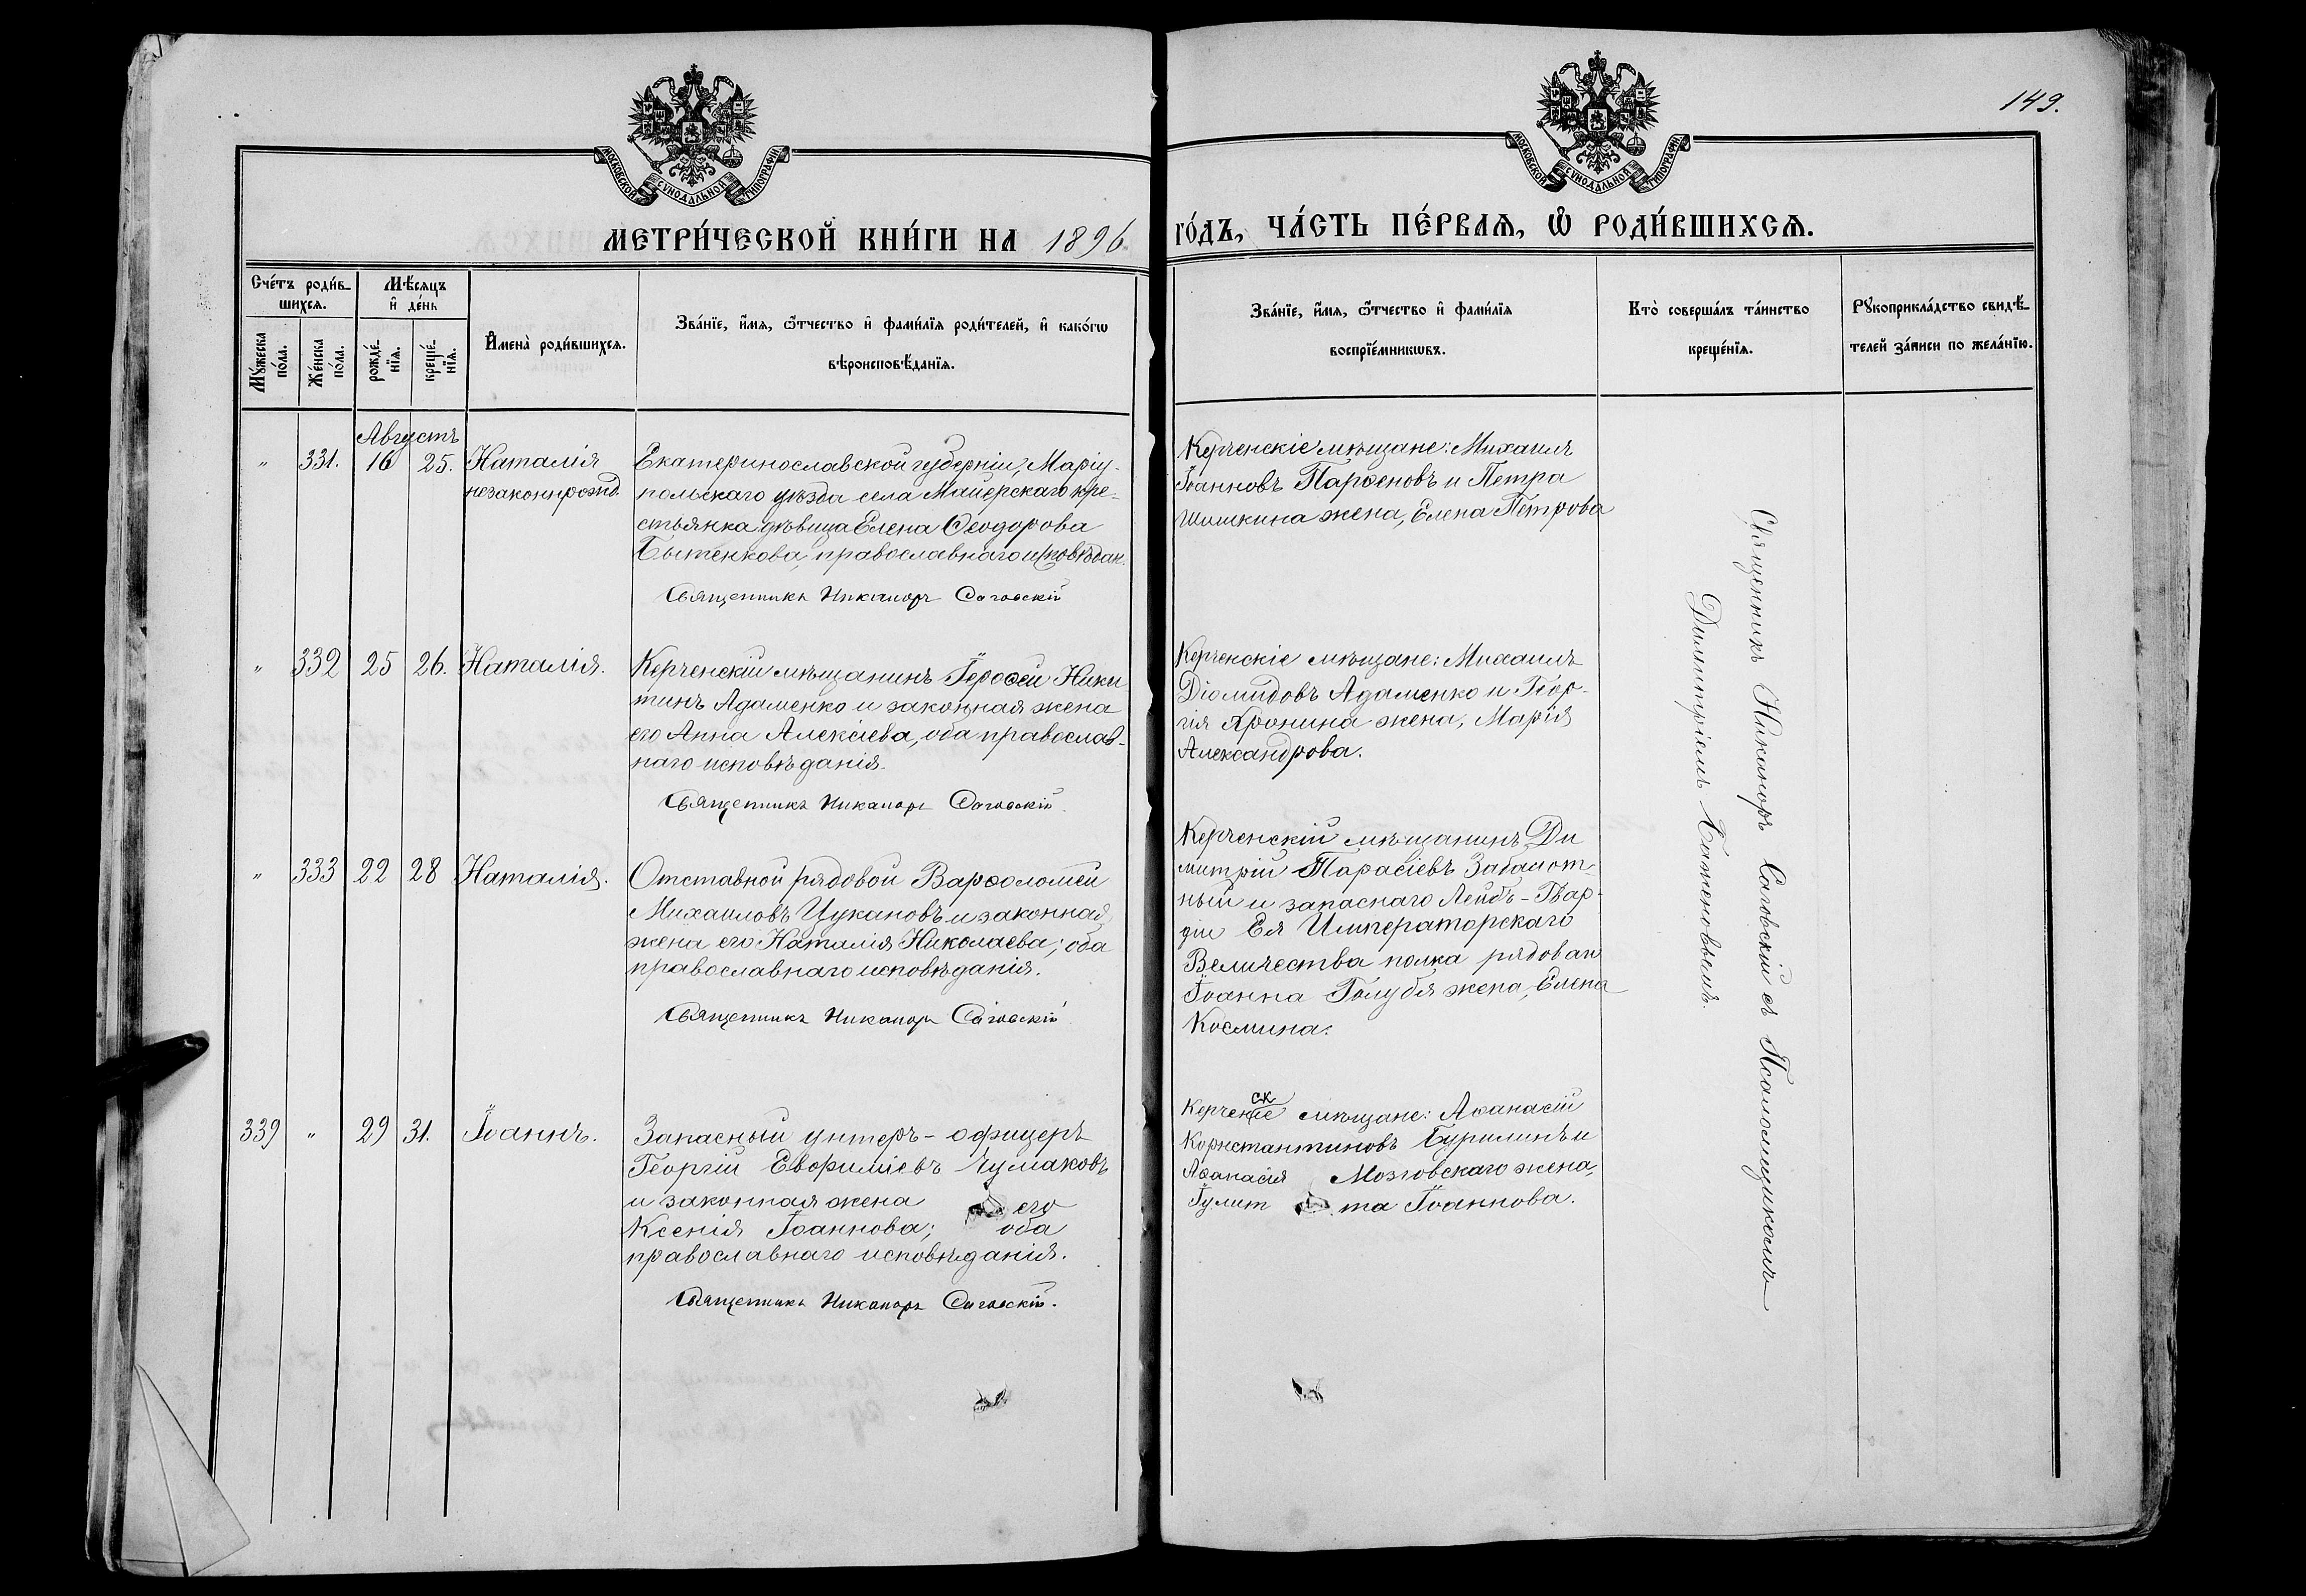 149.
МОСКОВСКОЙ СУНОДАЛЬНОЙ ТИПОГРАФІИ
МОСКОВСКОЙ СУНОДАЛЬНОЙ ТИПОГРАФІИ
МЕТРИ́ЧЕСКОЙ КНИ́ГИ НА 1896
ГО́ДЪ, ЧА́СТЬ ПЕ́РВАѦ, Ѡ҆ РОДИ́ВШИХСѦ.
Сче́тъ роди́в-
шихсѧ.
Мꙋ́жеска
по́ла.
Же́нска
по́ла.
Мѣ́сѧцъ
и҆ де́нь
рожде́-
нїѧ.
креще́-
нїѧ.
И҆мена̀ роди́вшихсѧ.
Зва́нїе, и҆́мѧ, ѻ҆́тчество и҆ фами́лїѧ роди́телей, и҆ како́гѡ
вѣроисповѣ́данїѧ.
Зва́нїе, и҆́мѧ, ѻ҆́тчество и҆ фами́лїѧ
воспрїе́мникѡвъ.
Кто̀ соверша́лъ та́инство
креще́нїѧ.
Рꙋкоприкла́дство свидѣ́-
телей за́писи по жела́нїю.
Августъ
" 331. 16 25. Наталія
незаконнрожд.
Екатеринославской губерніи, Маріу-
польскаго уѣзда села Майерскаго кре-
стьянка дѣвица Елена Ѳеодорова
Бытенкова, православнаго исповѣдан.
Священникъ Никаноръ Саговскій
Керченскіе мѣщане: Михаилъ
Іоанновъ Парѳеновъ и Петра
Шишкина жена, Елена Петрова
" 332 25 26. Наталія.
Керченскій мѣщанинъ Іероѳей Ники
тинъ Адаменко и законная жена
его Анна Алексіева, оба православ-
наго исповѣданія.
Священникъ Никаноръ Саговскій
Керченскіе мѣщане: Михаилъ
Діомидовъ Адаменко и Геор-
гія Яронина жена, Марія
Александрова.
" 333 22 28 Наталія.
Отставной рядовой Варѳоломей
Михаиловъ Цукановъ и законная
жена его Наталія Николаева; оба
православнаго исповѣданія.
Священникъ Никаноръ Саговскій
Керченскій мѣщанинъ Ди
митрій Тарасіевъ Заболот-
ный и запаснаго Лейбъ-Гвар-
діи Ея Императорскаго
Величества полка рядоваго
Іоанна Голубя жена, Елена
Космина.
339 " 29 31. Іоаннъ.
Запасный унтеръ-офицеръ
Георгій Евфиміевъ Чумаковъ
и законная жена его
Ксенія Іоаннова; оба
православнаго исповѣданія.
Священникъ Никаноръ Саговскій.
ск
Керченіе мѣщане: Аѳанасій
Константиновъ Бурилинъ и
Аѳанасія Мозговскаго жена,
Іулит та Іоаннова.
Священникъ Никаноръ Саговскій съ Псаломщикомъ
Димитріемъ Баженовымъ.